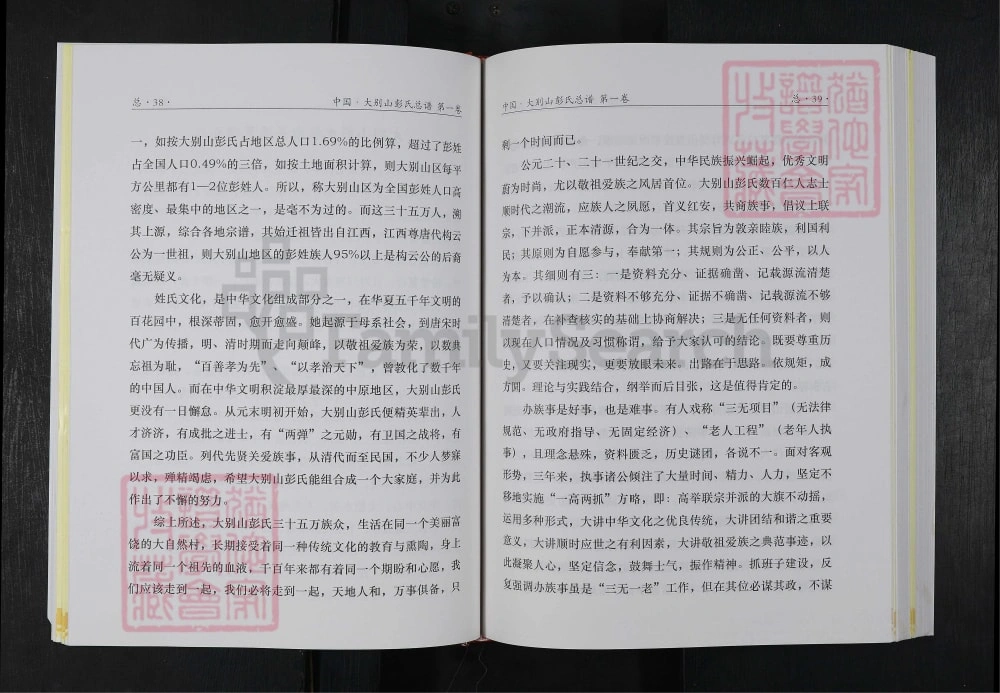 总·38· 中国·大别山彭氏总谱 第一卷
一，如按大别山彭氏占地区总人口1.69%的比例算，超过了彭姓
占全国人口0.49%的三倍，如按土地面积计算，则大别山区每平
方公里都有1—2位彭姓人。所以，称大别山区为全国彭姓人口高
密度、最集中的地区之一，是毫不为过的。而这三十五万人，溯
其上源，综合各地宗谱，其始迁祖皆出自江西，江西尊唐代构云
公为一世祖，则大别山地区的彭姓族人95%以上是构云公的后裔
毫无疑义。
姓氏文化，是中华文化组成部分之一，在华夏五千年文明的
百花园中，根深蒂固，愈开愈盛。她起源于母系社会，到唐宋时
代广为传播，明、清时期而走向颠峰，以敬祖爱族为荣，以数典
忘祖为耻，“百善孝为先”、“以孝治天下”，曾教化了数千年
的中国人。而在中华文明积淀最厚最深的中原地区，大别山彭氏
更没有一日懈怠。从元末明初开始，大别山彭氏便精英辈出，人
才济济，有成批之进士，有“两弹”之元勋，有卫国之战将，有
富国之功臣。列代先贤关爱族事，从清代而至民国，不少人梦寐
以求，殚精竭虑，希望大别山彭氏能组合成一个大家庭，并为此
作出了不懈的努力。
综上所述，大别山彭氏三十五万族众，生活在同一个美丽富
饶的大自然村，长期接受着同一种传统文化的教育与熏陶，身上
流着同一个祖先的血液，千百年来都有着同一个期盼和心愿，我
们应该走到一起，我们必将走到一起，天地人和，万事俱备，只
中国·大别山彭氏总谱 第一卷 总·39·
剩一个时间而已。
公元二十、二十一世纪之交，中华民族振兴崛起，优秀文明
蔚为时尚，尤以敬祖爱族之风居首位。大别山彭氏数百仁人志士
顺时代之潮流，应族人之夙愿，首义红安，共商族事，倡议上联
宗，下并派，正本清源，合为一体。其宗旨为敦亲睦族，利国利
民；其原则为自愿参与，奉献第一；其规则为公正、公平，以人
为本。其细则有三：一是资料充分、证据确凿、记载源流清楚
者，予以确认；二是资料不够充分、证据不确凿、记载源流不够
清楚者，在补查核实的基础上协商解决；三是无任何资料者，则
以现在人口情况及习惯称谓，给予大家认可的结论。既要尊重历
史，又要关注现实，更要放眼未来。出路在于思路。依规矩，成
方圆。理论与实践结合，纲举而后目张，这是值得肯定的。
办族事是好事，也是难事。有人戏称“三无项目”（无法律
规范、无政府指导、无固定经济）、“老人工程”（老年人执
事），且理念悬殊，资料匮乏，历史谜团，各说不一。面对客观
形势，三年来，执事诸公倾注了大量时间、精力、人力，坚定不
移地实施“一高两抓”方略，即：高举联宗并派的大旗不动摇，
运用多种形式，大讲中华文化之优良传统，大讲团结和谐之重要
意义，大讲顺时应世之有利因素，大讲敬祖爱族之典范事迹，以
此凝聚人心，坚定信念，鼓舞士气，振作精神。抓班子建设，反
复强调办族事虽是“三无一老”工作，但在其位必谋其政，不谋
FamilySearch